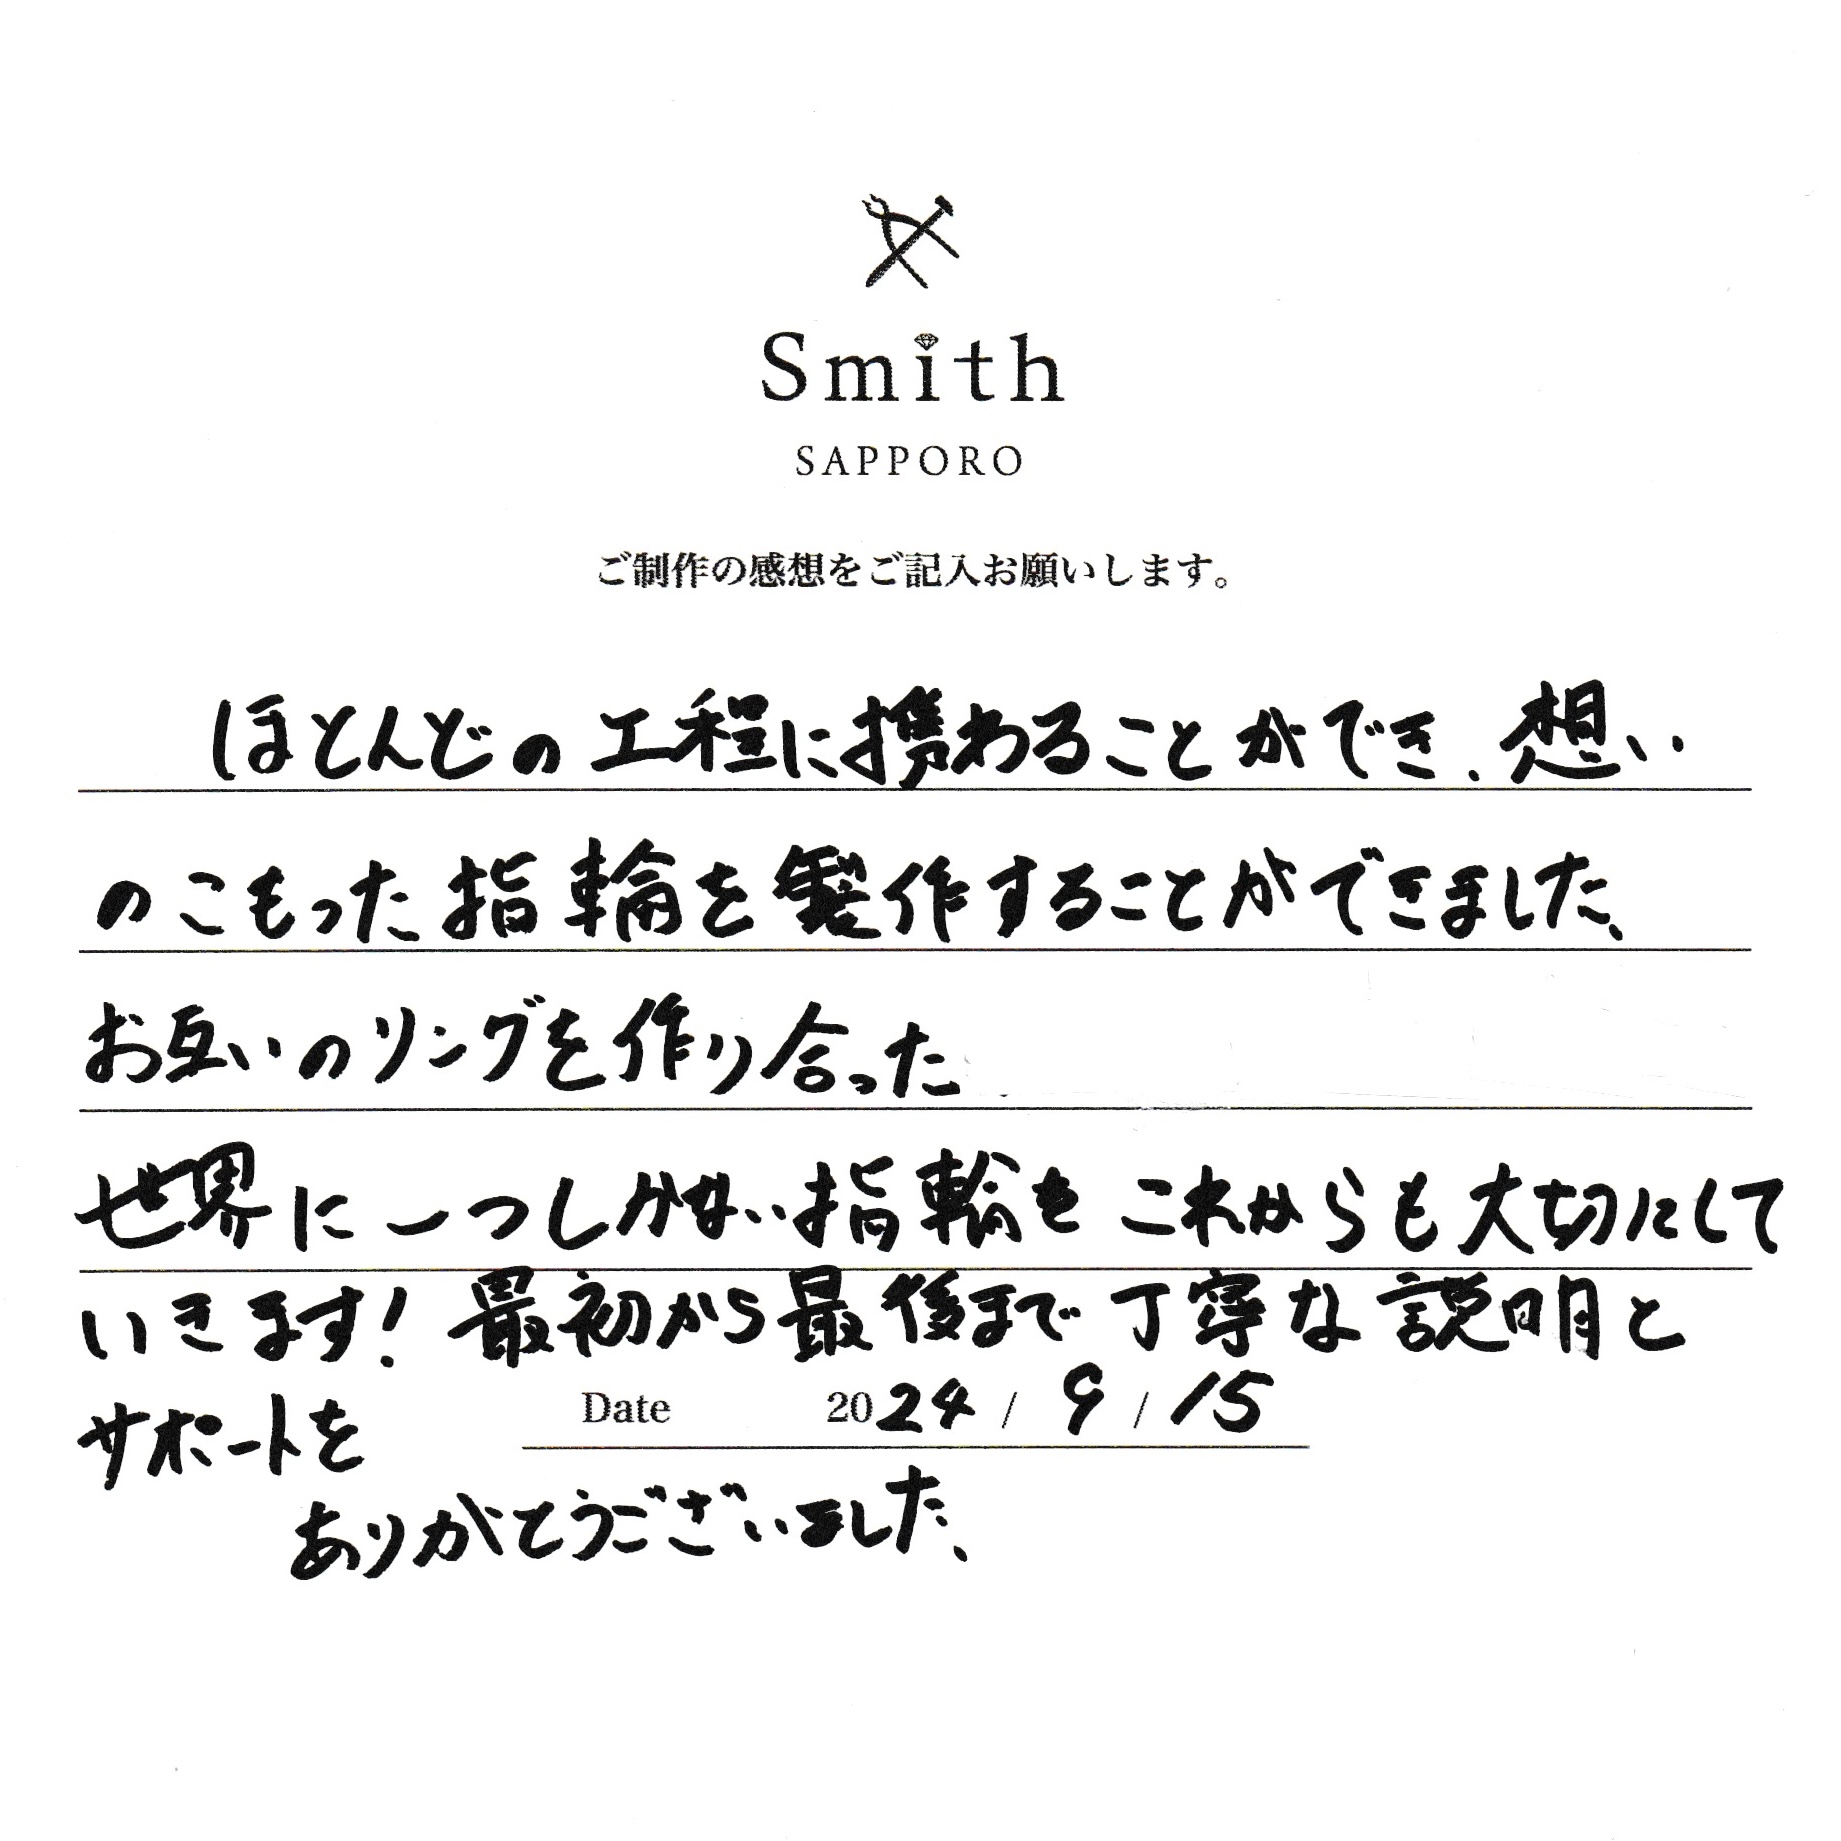 Smith
SAPPORO
ご制作の感想をご記入お願いします。
ほとんどの工程に携わることができ、想い
のこもった指輪を製作することができました、
お互いのリングを作り合った
世界に一つしかない指輪を これからも大切にして
いきます! 最初から最後まで丁寧な説明と
サポートを
Date 2024 / 9 / 15
ありがとうございました、